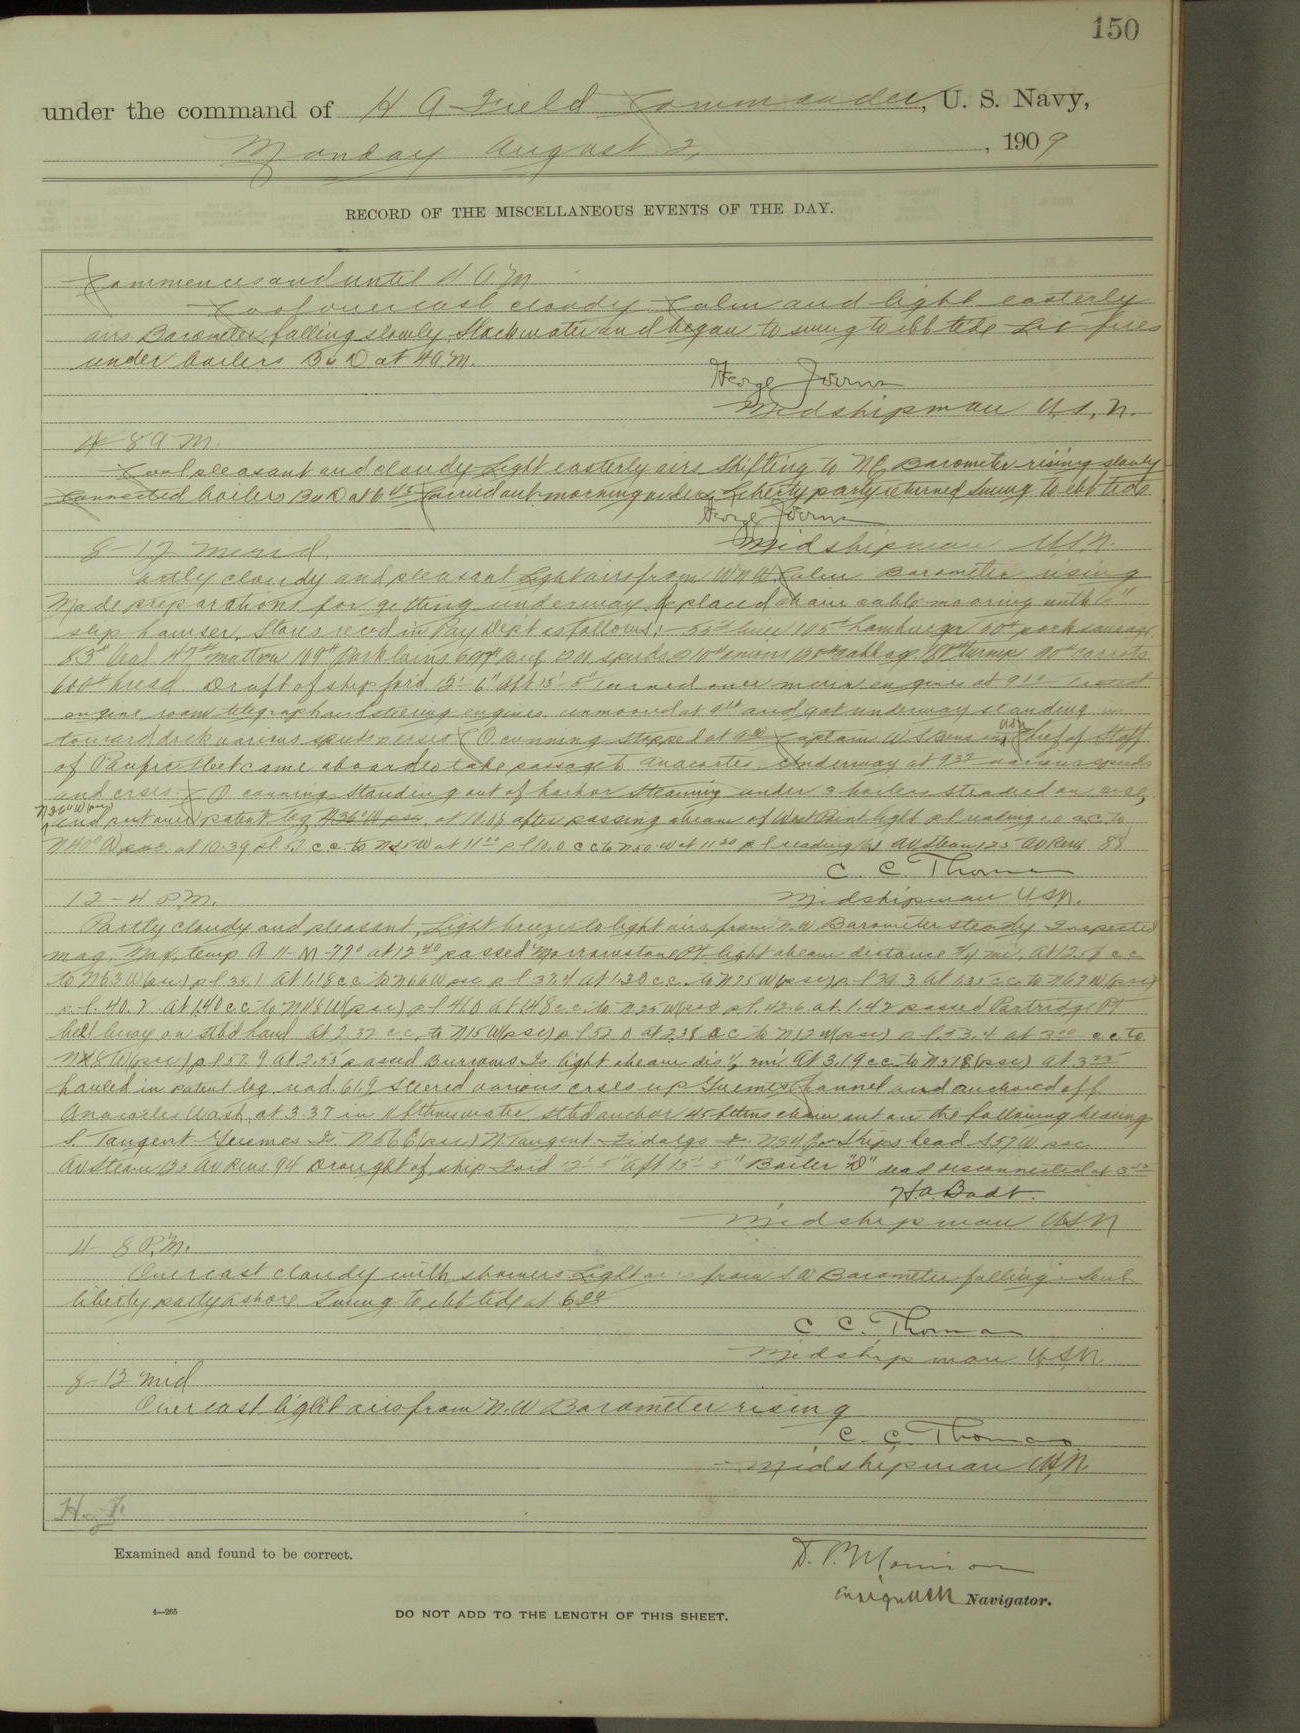 150
under the command of H A Field Commander, U. S. Navy,
Monday August 2, , 1909
RECORD OF THE MISCELLANEOUS EVENTS OF THE DAY.
Commences and until 4 A.M
Cool overcast cloudy Calm and light easterly
airs Barometer falling slowly. Slack water and began to swing to ebb tide Lit fires
under boilers B & D at 4 A.M.
George Joerns
Midshipman U.S.N.
4-8 A M.
Cool pleasant and cloudy Light easterly airs Shifting to NE Barometer rising slowly
Connected boilers B & D at 6 45 Carried out morning orders Liberty party returned Swung to ebb tide
George Joerns
Midshipman U.S.N.
8-12 Merid.
Partly cloudy and pleasant Light airs from WNW Calm Barometer rising
Made preparations for getting underway Replaced chain cable mooring with 6"
slip hawser. Stores recd in Pay Dept as follows:- 105# hamburger 50# pork sausage
83# Veal 47# mutton 109# Pork loins beef spuds onions cabbage turnips 90# carrots
600# bread Draft of ship ford 12' 6" aft 15' 5" Turned over main engines at 9 Tested
engine room telegraph and steering engines. unmoored at 9 and got underway standing in
toward dock various speeds Co conning Stopped at Captain USN Chief of Staff
of Pacific Fleet came aboard to take passage to Anacortes. Underway at 9 various speeds
and courses C O conning standing out of harbor Steaming under 3 boilers steadied on crse
N 36° W psc and put over patent log N 36° W psc at 10.15 after passing abeam of West Point light p l reading 0.0 c.c. to
at 10.39 p l 5. c c to at 11 p l 10.0 c c to N 50 W at 11 p l reading Av Steam 125 Av Revs 88
C. C. Thomas
Midshipman U.S.N.
12-4 P.M.
Partly cloudy and pleasant, Light breezes to light airs from N.W Barometer steady Inspected
mag. Max. temp A 11-M-77° at 12 40 passed Marrowstone Pt. light abeam distance 3/4 mi. At 12.58 c c
to N63W (psc) p l 35.1 At 1.18 c c to N66W psc p l 37.4 At 1.30 c c. to N75W (psc) p l 39.3 At 1.35 c.c. to N67W (psc)
p l. 40.2 At 1.40 c c to N48W (psc) p l 41.0 at 1.48 c c. to N25W psc p l. 42.6. at 1.42 passed Partridge Pt
bell buoy on stbd hand At 2.37 c c, to N15W (psc) p l 52.0 at 2.38 c c to N12W (psc) p l 53.4 at 3 00 c c to
N 8 W (psc) p l 57.9 At 2.55 passed Burrows Is light abeam dis 1/2 mi. At 3.19 c c to N51E (psc) at 3 25
hauled in patent log. read. 61.9 Steered various crses up Guemes Channel and anchored off
Anacortes Wash. at 3.37 in 11 fthms water stbd anchor 45 fthms chain out on the following bearing
S. Tangent Guemes Is. N56E (psc) N Tangent Fidalgo Is. N84E Ships head S57W psc.
Av Steam 125 Av Revs 94 Draught of ship Ford 12'-5" Aft 15'-5" Boiler "D" was disconnected at 3
H.A. Badt.
Midshipman USN
4-8 P.M.
Overcast cloudy with showers Light airs from S W Barometer falling. Sent
liberty party ashore Swung to ebb tide at 6.00
C C. Thomas
Midshipman U.S.N.
8-12 Mid
Overcast light airs from N.W Barometer rising
C. C. Thomas
Midshipman USN.
H. F.
Examined and found to be correct.
Ensign USN Navigator.
4—265
DO NOT ADD TO THE LENGTH OF THIS SHEET.